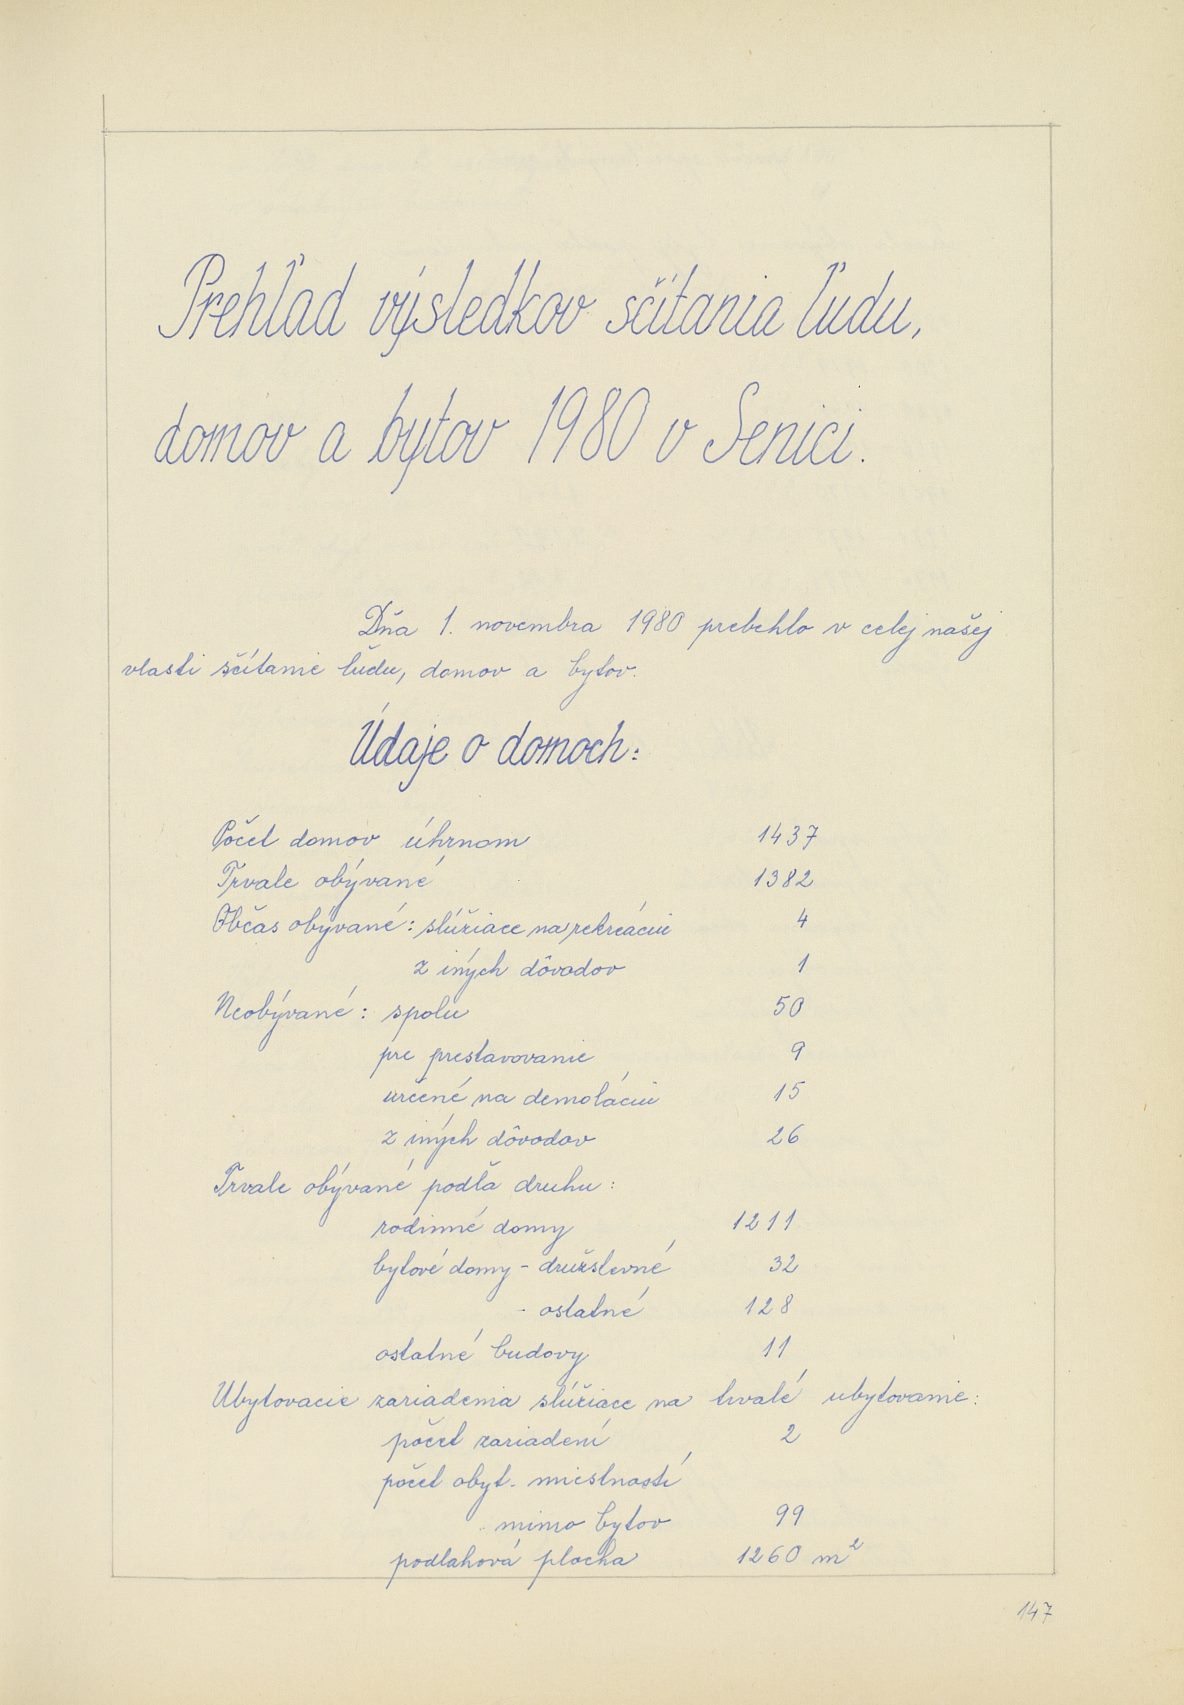 Prehľad výsledkov sčítania ľudu,
domov a bytov 1980 v Senici.
Dňa 1. novembra 1980 prebehlo v celej našej
vlasti sčítanie ľudu, domov a bytov.
Údaje o domoch:
Počet domov úhrnom 1437
Trvale obývané 1382
Občas obývané: slúžiace na rekreáciu 4
z iných dôvodov 1
Neobývané: spolu 50
pre prestavovanie 9
určené na demoláciu 15
z iných dôvodov 26
Trvale obývané podľa druhu:
rodinné domy 1211
bytové domy - družstevné 32
- ostatné 128
ostatné budovy 11
Ubytovacie zariadenia slúžiace na trvalé ubytovanie:
počet zariadení 2
počet obyt. miestností
mimo bytov 99
podlahová plocha 1260 m²
147